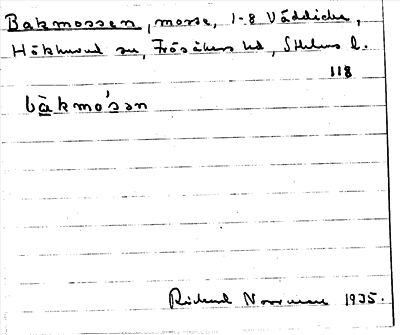 Bakmossen, mosse, 1-8 Väddicka,
Häkhuvud sn, Frösåkers hd, Sthlms l.
118
bàkmo'sǝn
Rickard Norrman 1935.